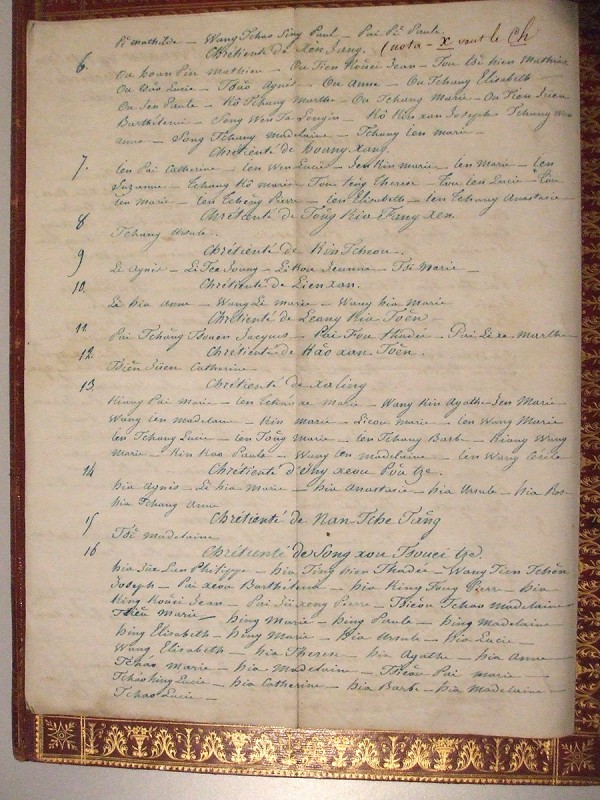 Pē Mathilde — Wang Tchao Sing Paul — Pai Pē Paule.
6. Chrétienté de Xen Jang. (nota - x vaut le Ch
Ou hoan Pin Mathieu — Ou Tien Kouei Jean — Tou
Ou Lucie — Agnès — Ou Anne — Ou Tchang Elisabeth
Ou Jen Paule — Kô Tchang Marthe — Ou Tchang Marie — Ou Tien
Barthélemi — Song Wen Joseph Tchang
anne — Song Tchang Madelaine — Tchang Marie —
7. Chrétienté de hoang xang.
Len Pai Catherine — Len Wen Lucie — Jen Kin Marie — Len Marie — Len
Suzanne — Tchang Kô Marie — Therese — Len Lucie
Len Marie — Len Pierre — Len Elisabeth — Len Tchang Anastasie
8 Chrétienté de Tông Kia Fang xen.
Tchang Ursule.
9 Chrétienté de Kin Tcheou.
Li Agnès — Jeanne — Marie —
10. Chrétienté de Lien xan.
Lê hia Anne — Wang Li Marie — Wang hia Marie
11. Chrétienté de Leang hia Toên —
Pai Tchâng Tsouen Jacques — Pai Fou thadée — Pai Li xe Marthe
12. Chrétienté de Hâo xan Toên.
Catherine
13. Chrétienté de xa ling
Kiang Pai Marie — Len Marie — Wang Kin Agathe — Jen Marie
Wang Len Madelaine — Kin Marie — Lieou Marie — Len Wang Marie
Len Tchang Lucie — Len Tông Marie — Len Tchang Barbe — Kiang Wang
Marie — Kin Kao Paule — Wang Len Madelaine — Len Wang Cécile
14 Chrétienté d'Yng xeou Pôa tze.
hia Agnès — Lê hia Marie — hia Anastasie — hia Ursule — hia Ros-
hia Tchang Anne
15 Chrétienté de Nan Tche Tâng
Madelaine
16 Chrétienté de Song xou Tsouei tze.
hia Jûe Lan Philippe — hia Ting hien Thadée — Wang Tien
Joseph — Pai xeou Barthélemi — hia King Fong Pierre — hia
King Kouei Jean — Pai Jû xeng Pierre — Tchao Madelaine
Marie — hing Marie — hing Paule — hing Madelaine
hing Elisabeth — hing Marie — hia Ursule — hia Lucie —
Wang Elisabeth — hia Therese — hia Agathe — hia Anne
Tchao Marie — hia Madelaine — Pai Marie
Tchao King Lucie — hia Catherine — hia Barbe — hia Madelaine
Tchao Lucie —